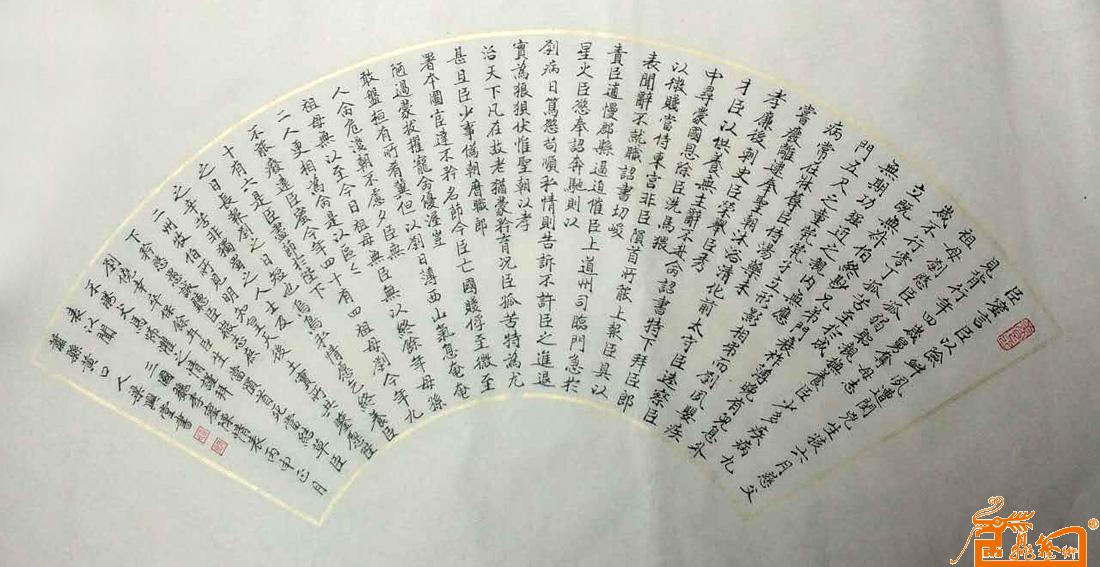 臣密言臣以險釁夙遭閔兇生孩六月慈父
見背行年四歲舅奪母志
祖母劉愍臣孤弱躬親撫養臣少多疾病九
歲不行零丁孤苦至於成
立既無伯叔終鮮兄弟門衰祚薄晚有兒息外
無期功強近之親內無應
門五尺之童煢煢孑立形影相弔而劉夙嬰疾
病常在牀蓐臣侍湯藥未
嘗廢離逮奉聖朝沐浴清化前太守臣逵察臣
孝廉後刺史臣榮舉臣秀
才臣以供養無主辭不赴命詔書特下拜臣郎
中尋蒙國恩除臣洗馬猥
以微賤當侍東宮非臣隕首所能上報臣具以
表聞辭不就職詔書切峻
責臣逋慢郡縣逼迫催臣上道州司臨門急於
星火臣慾奉詔奔馳則以
劉病日篤慾苟順私情則告訴不許臣之進退
實為狼狽伏惟聖朝以孝
治天下凡在故老猶蒙矜育況臣孤苦特為尤
甚且臣少事偽朝曆職郎
署本圖宦達不矜名節今臣亡國賤俘至微至
陋過蒙拔擢寵命優渥豈
敢盤桓有所希冀但以劉日薄西山氣息奄奄
人命危淺朝不慮夕臣無
祖母無以至今日祖母無臣無以終餘年母孫
二人更相為命是以區々
不能廢遠臣密今年四十有四祖母劉今年九
十有六是臣盡節於陛下
之日長報劉之日短也烏鳥私情願乞終養臣
之辛苦非獨蜀之人士及
二州牧伯所見明知皇天後土實所共鑒願陛
下矜愍愚誠聽臣微志庶
劉僥幸保餘年臣生當隕首死當結草臣
不勝犬馬怖懼之情謹拜
表以聞 三國蜀李密陳情表丙申正月
蕭縣黃口人書